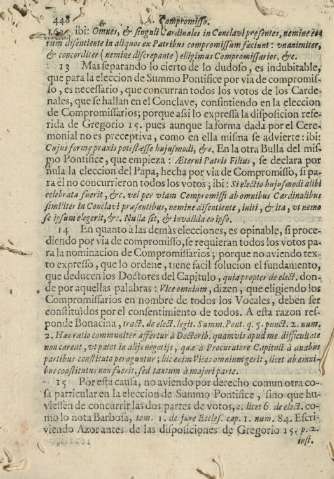 448 Compromisso.
ibi: Omnes, & singuli Cardinales in Conclavi presentes, nemine
rum dissentiente in aliquos ex Patribus compromissum faciunt: unanimiter,
& concorditer (nemine discrepante) eligimus Compromissarios, &c.
13 Mas separando lo cierto de lo dudoso, es indubitable,
que para la eleccion de Summo Pontifice por via de compromis-
so, es necessario, que concurran todos los votos de los Carde-
nales, que se hallan en el Conclave, consintiendo en la eleccion
de Compromissarios; porque assi lo expressa la disposicion rese-
rida de Gregorio 15. pues aunque la forma dada por el Cere-
monial no es preceptiva, como en ella misma se advierte: ibi:
Cujus formæ praxis potest esse hujusmodi, &c. En la otra Bulla del mis-
mo Pontifice, que empieza: Æterni Patris Filius, se declara por
nula la eleccion del Papa, hecha por via de Compromisso, si pa-
ra èl no concurrieron todos los votos; ibi: Si electio hujusmodi alibi
celebrata fuerit, &c. vel per viam Compromissi ab omnibus Cardinalibus
similiter in Conclavi præsentibus, nemine dissentiente, initi, & ita, ut nemo
se ipsum elegerit, &c. Nulla sit, & invalida eo ipso.
14 En quanto à las demàs elecciones, es opinable, si proce-
diendo por via de compromisso, se requieran todos los votos pa-
ra la nominacion de Compromissarios; porque no aviendo tex-
to expresso, que lo ordene, tiene facil solucion el fundamento,
que deducen los Doctores del Capitulo, quia propter de elect. don-
de por aquellas palabras: Vice omnium, dizen, que eligiendo los
Compromissarios en nombre de todos los Vocales, deben ser
constituidos por el consentimiento de todos. A esta razon res-
ponde Bonacina, tract. de elect. legit. Summ. Pont. q. 5. punct. 2. num.
2. Hæc ratio communiter affertur à Doctorib. quamvis apud me difficultate
non careat, ut patet in aliis negotiis, quæ à Procuratore Capituli à duabus
partibus constituto peraguntur; hic enim vice omnium gerit, licet ab omni-
bus constitutus non fuerit, sed tantum à majori parte.
15 Por esta causa, no aviendo por derecho comun otra co-
sa particular en la eleccion de Summo Pontifice, sino que hu-
viessen de concurrir las dos partes de votos, c. licet 6. de elect. co-
mo lo nota Barbosa, tom. 1. de jure Eccles. cap. 1. num. 84. Escri-
viendo Azor antes de las disposiciones de Gregorio 15. p. 2.
inst.